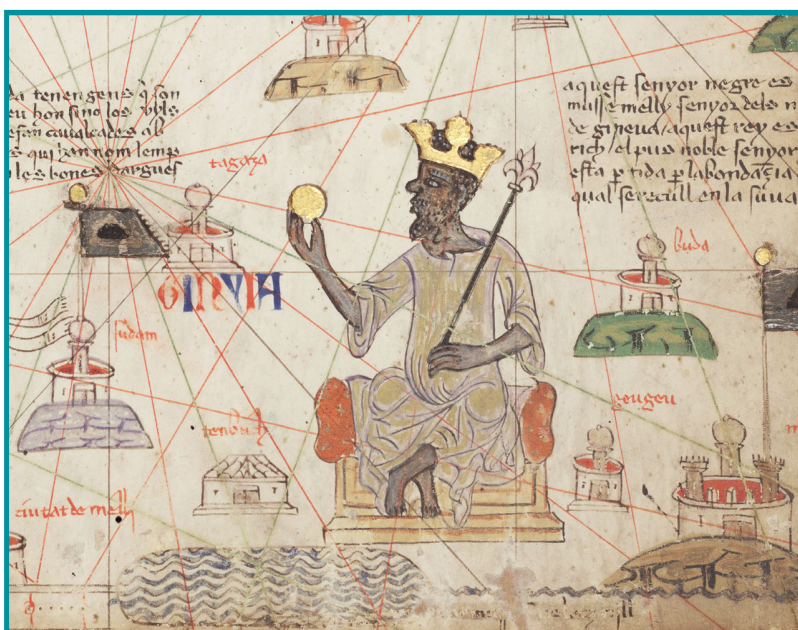 da tenen gens q̃ son
eu hon sino los uyls
e fan caualcades ab
s qui han nom lemp
les bones dargues
aquest senyor negre es
musse melly senyor dels n
de gineua aquest rey es
rich el pus noble senyor
esta ptida p labondazia
qual se recull en la suua
tagaza
buda
GINYIA
sudam
geugeu
tenbuch
ciutat de melli